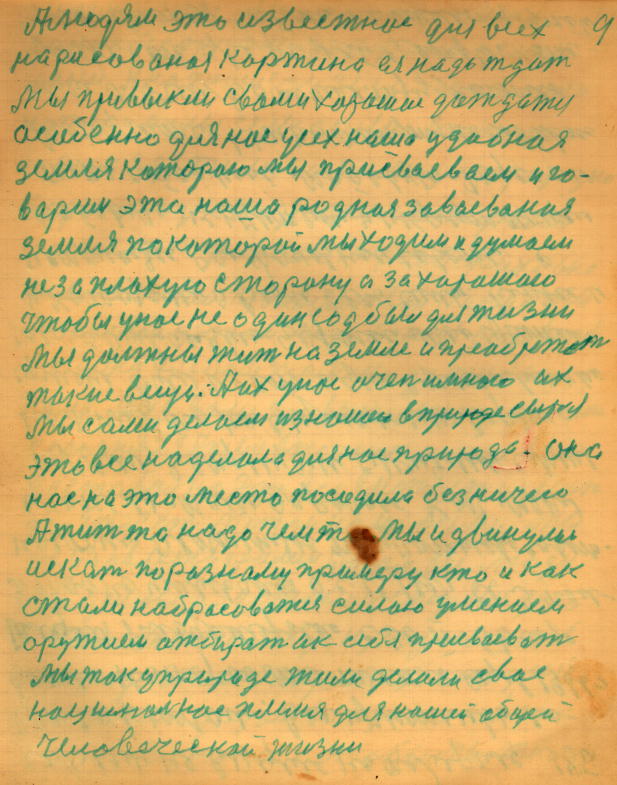 А людям это известное для всех 9
нарисованая картина ея надо ждат
Мы привыкли своми хорошие дождати
особенно для нас усех наша удобная
земля которою мы присваеваем и го-
варим эта наша родная заваеваная
земля по которой мы ходим и думаем
не за плохую сторону а за хорошаю
чтобы у нас не один год было для жизни
Мы должны жит на земле и преобретат
такие вещи. А их у нас очен много их
мы сами делаем из нашей в природе сыря
Это все наделала для нас природа. она
нас на это место посадила без ничего
А жит та надо чемто мы и двинулис
искат по разному примеру кто и как
стали набрасоватся силою умением
оружием отбират ак себя присваеват
мы так у природе жили делали свае
национальное племя для нашей общей
человеческой жизни